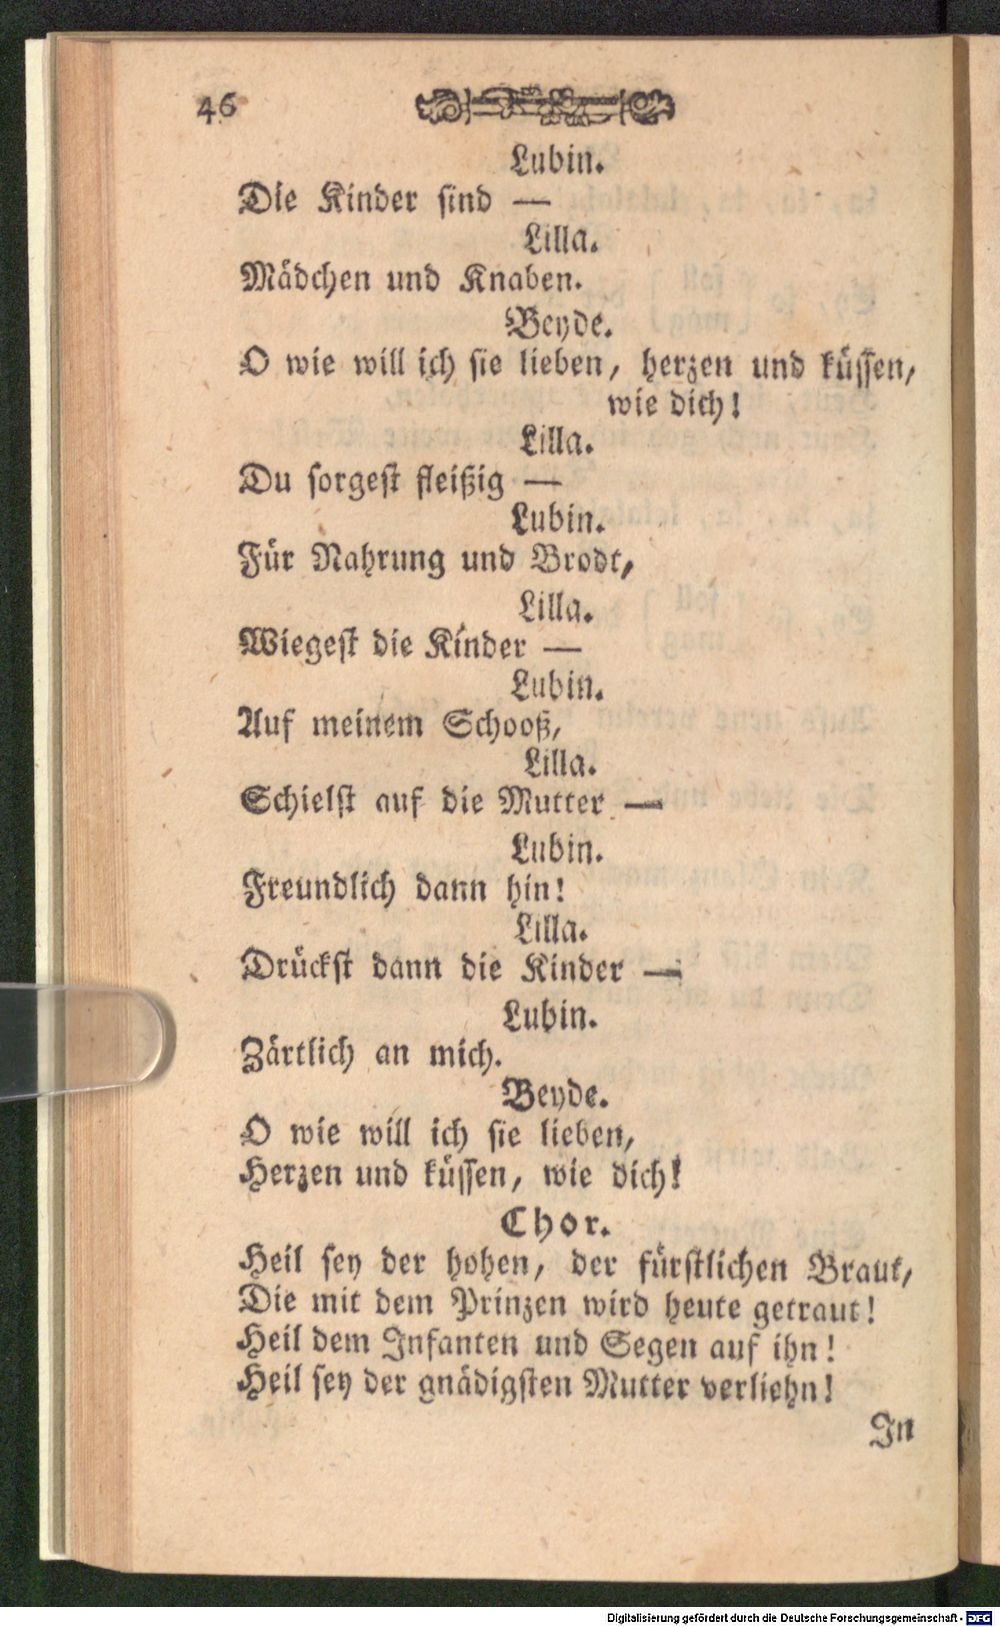 46
Lubin.
Die Kinder sind —
Lilla.
Mädchen und Knaben.
Beyde.
O wie will ich sie lieben, herzen und küssen,
wie dich!
Lilla.
Du sorgest fleißig —
Lubin.
Für Nahrung und Brodt,
Lilla.
Wiegest die Kinder —
Lubin.
Auf meinem Schooß,
Lilla.
Schielst auf die Mutter —
Lubin.
Freundlich dann hin!
Lilla.
Drückst dann die Kinder —
Lubin.
Zärtlich an mich.
Beyde.
O wie will ich sie lieben,
Herzen und küssen, wie dich!
Chor.
Heil sey der hohen, der fürstlichen Braut,
Die mit dem Prinzen wird heute getraut!
Heil dem Infanten und Segen auf ihn!
Heil sey der gnädigsten Mutter verliehn!
In
Digitalisierung gefördert durch die Deutsche Forschungsgemeinschaft - DFG